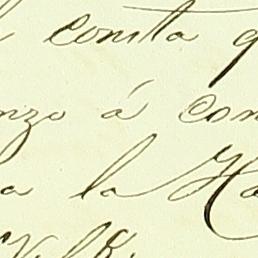 consta q
nzo á con
a la Ha